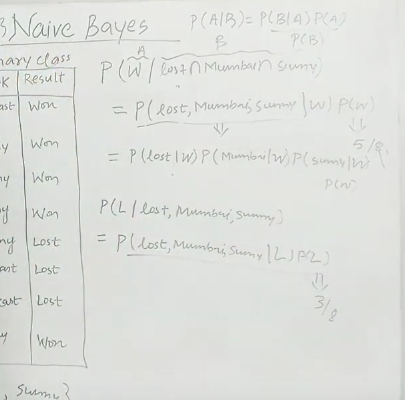 Naive Bayes
P(A/B) = P(B/A) P(A)
P(B)
nary class
K | Result
ast | Won
y | Won
ny | Won
y | Won
ny | Lost
ast | Lost
cast | Lost
y | Won
A
B
P(W / lost ∩ Mumbai ∩ sunny)
= P(lost, Mumbai, sunny | W) P(W)
5/8
= P(lost|W) P(Mumbai|W) P(sunny|W)
P(W)
P(L / lost, Mumbai, sunny)
= P(lost, Mumbai, sunny | L) P(L)
3/8
, sunny}